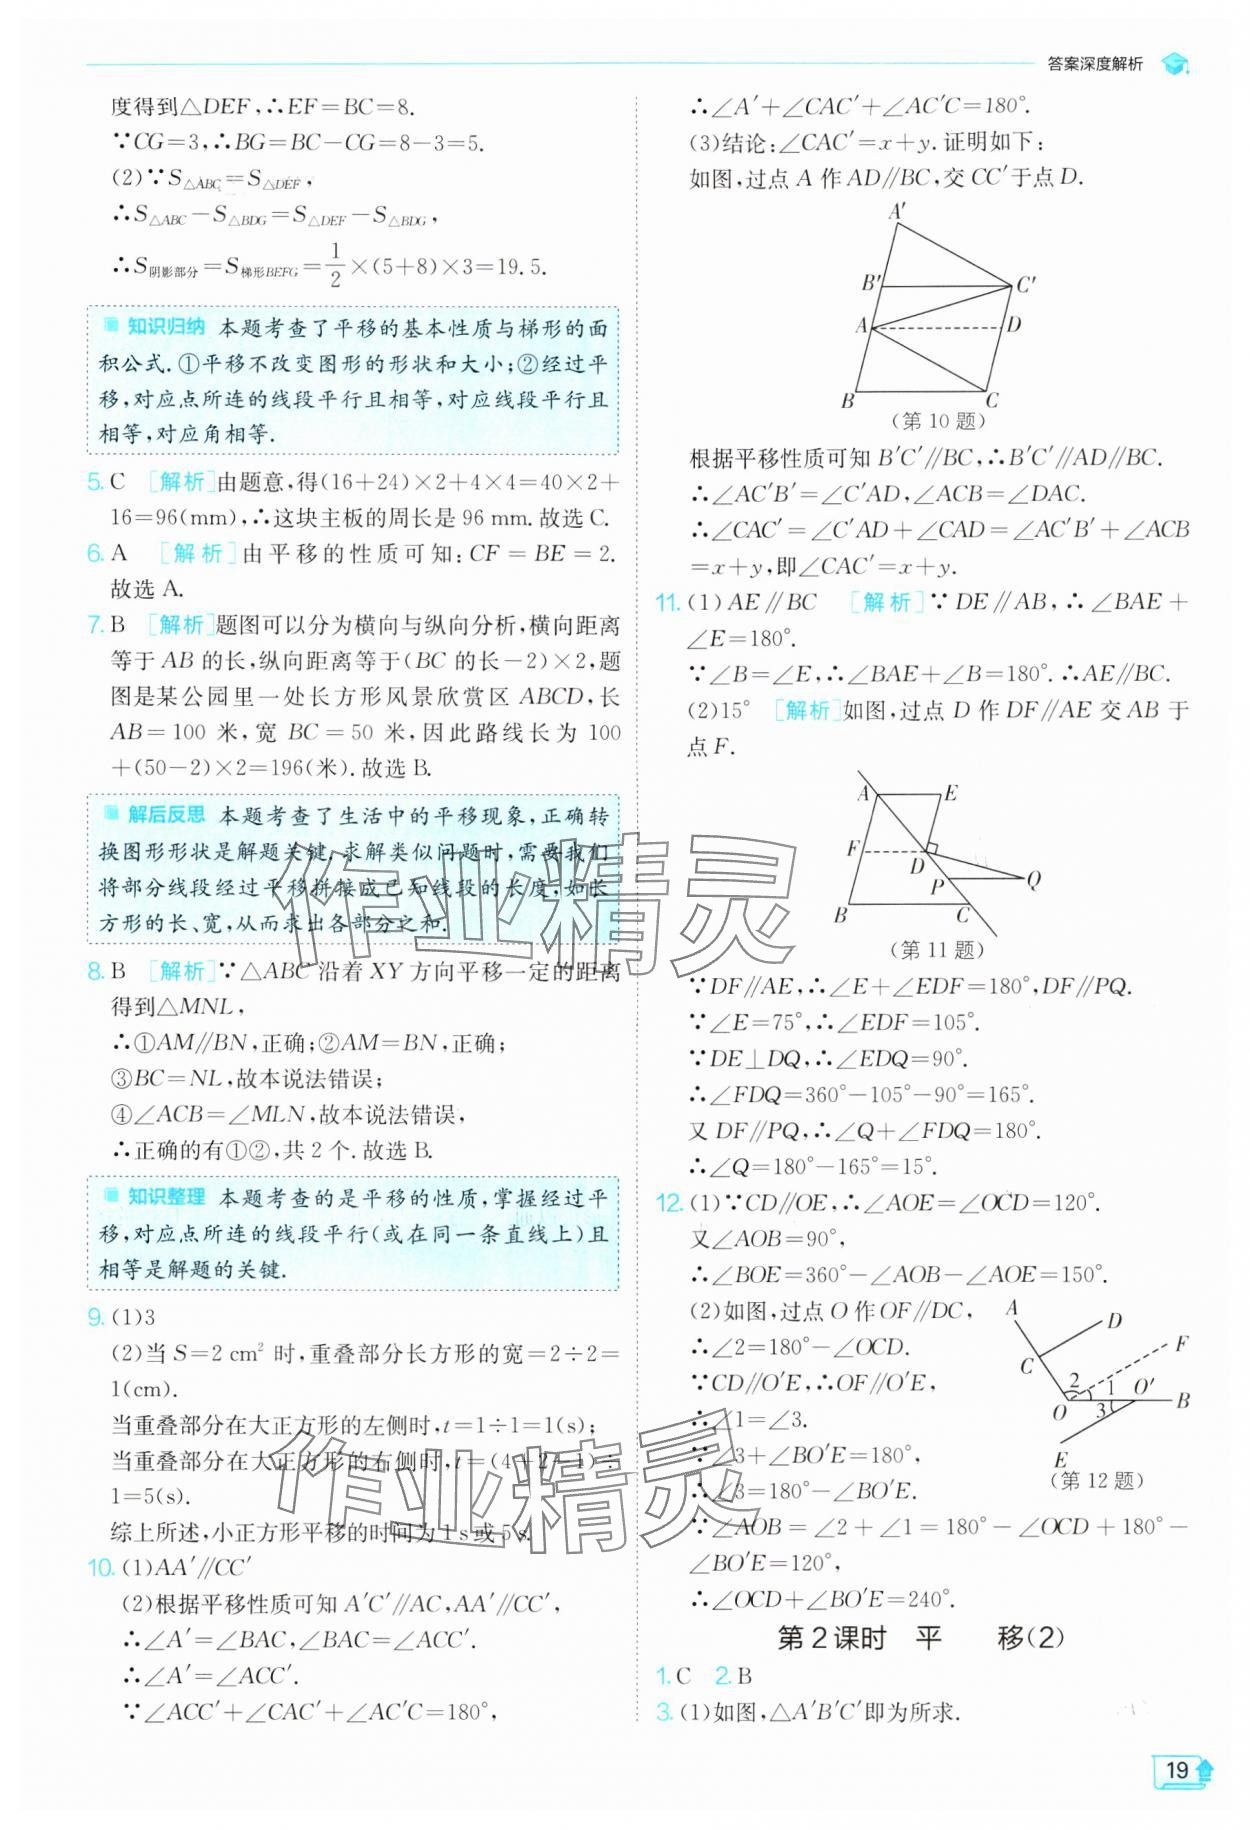 答案深度解析
度得到△DEF,∴EF=BC=8.
∵CG=3,∴BG=BC-CG=8-3=5.
(2)∵S△ABC=S△DEF,
∴S△ABC-S△BDG=S△DEF-S△BDG,
∴S阴影部分=S梯形BEFG=1/2×(5+8)×3=19.5.
知识归纳 本题考查了平移的基本性质与梯形的面
积公式.①平移不改变图形的形状和大小;②经过平
移,对应点所连的线段平行且相等,对应线段平行且
相等,对应角相等.
5. C [解析]由题意,得(16+24)×2+4×4=40×2+
16=96(mm),∴这块主板的周长是96 mm.故选C.
6. A [解析]由平移的性质可知:CF=BE=2.
故选A.
7. B [解析]题图可以分为横向与纵向分析,横向距离
等于AB的长,纵向距离等于(BC的长-2)×2,题
图是某公园里一处长方形风景欣赏区ABCD,长
AB=100米,宽BC=50米,因此路线长为100
+(50-2)×2=196(米).故选B.
解后反思 本题考查了生活中的平移现象,正确转
换图形形状是解题关键.求解类似问题时,需要我们
将部分线段经过平移拼接成已知线段的长度,如长
方形的长、宽,从而求出各部分之和.
8. B [解析]∵△ABC沿着XY方向平移一定的距离
得到△MNL,
∴①AM∥BN,正确;②AM=BN,正确;
③BC=NL,故本说法错误;
④∠ACB=∠MLN,故本说法错误,
∴正确的有①②,共2个.故选B.
知识整理 本题考查的是平移的性质,掌握经过平
移,对应点所连的线段平行(或在同一条直线上)且
相等是解题的关键.
9. (1)3
(2)当S=2 cm²时,重叠部分长方形的宽=2÷2=
1(cm).
当重叠部分在大正方形的左侧时,t=1÷1=1(s);
当重叠部分在大正方形的右侧时,t=(4+2-1)÷
1=5(s).
综上所述,小正方形平移的时间为1 s或5 s.
10. (1)AA′∥CC′
(2)根据平移性质可知A′C′∥AC,AA′∥CC′,
∴∠A′=∠BAC,∠BAC=∠ACC′.
∴∠A′=∠ACC′.
∵∠ACC′+∠CAC′+∠AC′C=180°,
∴∠A′+∠CAC′+∠AC′C=180°.
(3)结论:∠CAC′=x+y.证明如下:
如图,过点A作AD∥BC,交CC′于点D.
A′
B′
C′
A
D
B
C
(第10题)
根据平移性质可知B′C′∥BC,∴B′C′∥AD∥BC.
∴∠AC′B′=∠C′AD,∠ACB=∠DAC.
∴∠CAC′=∠C′AD+∠CAD=∠AC′B′+∠ACB
=x+y,即∠CAC′=x+y.
11. (1)AE∥BC [解析]∵DE∥AB,∴∠BAE+
∠E=180°.
∵∠B=∠E,∴∠BAE+∠B=180°.∴AE∥BC.
(2)15° [解析]如图,过点D作DF∥AE交AB于
点F.
A
E
F
D
P
Q
B
C
(第11题)
∵DF∥AE,∴∠E+∠EDF=180°,DF∥PQ.
∵∠E=75°,∴∠EDF=105°.
∵DE⊥DQ,∴∠EDQ=90°.
∴∠FDQ=360°-105°-90°=165°.
又DF∥PQ,∴∠Q+∠FDQ=180°.
∴∠Q=180°-165°=15°.
12. (1)∵CD∥OE,∴∠AOE=∠OCD=120°.
又∠AOB=90°,
∴∠BOE=360°-∠AOB-∠AOE=150°.
(2)如图,过点O作OF∥DC,
∴∠2=180°-∠OCD.
∵CD∥O′E,∴OF∥O′E,
∴∠1=∠3.
∵∠3+∠BO′E=180°,
∴∠3=180°-∠BO′E.
∵∠AOB=∠2+∠1=180°-∠OCD+180°-
∠BO′E=120°,
∴∠OCD+∠BO′E=240°.
A
D
F
C
2
1
O′
O
3
B
E
(第12题)
第2课时 平 移(2)
1. C 2. B
3. (1)如图,△A′B′C′即为所求.
19
作业精灵
作业精灵